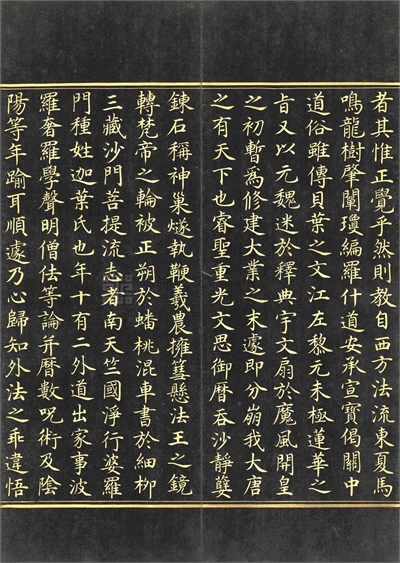 者其惟正覺乎然則教自西方法流東夏馬
鳴龍樹肇闡瓊編羅什道安承宣寶偈關中
道俗雖傳貝葉之文江左黎元未極蓮華之
旨又以元魏迷於釋典宇文扇於魔風開皇
之初暫爲修建大業之末遽即分崩我大唐
之有天下也睿聖重光文思御曆吞沙靜孽
鍊石稱神巢燧執鞭羲農擁篲懸法王之鏡
轉梵帝之輪被正朔於蟠桃混車書於細柳
三藏沙門菩提流志者南天竺國淨行婆羅
門種姓迦葉氏也年十有二外道出家事波
羅奢羅學聲明僧佉等論并曆數呪術及陰
陽等年踰耳順遽乃心歸知外法之乖違悟